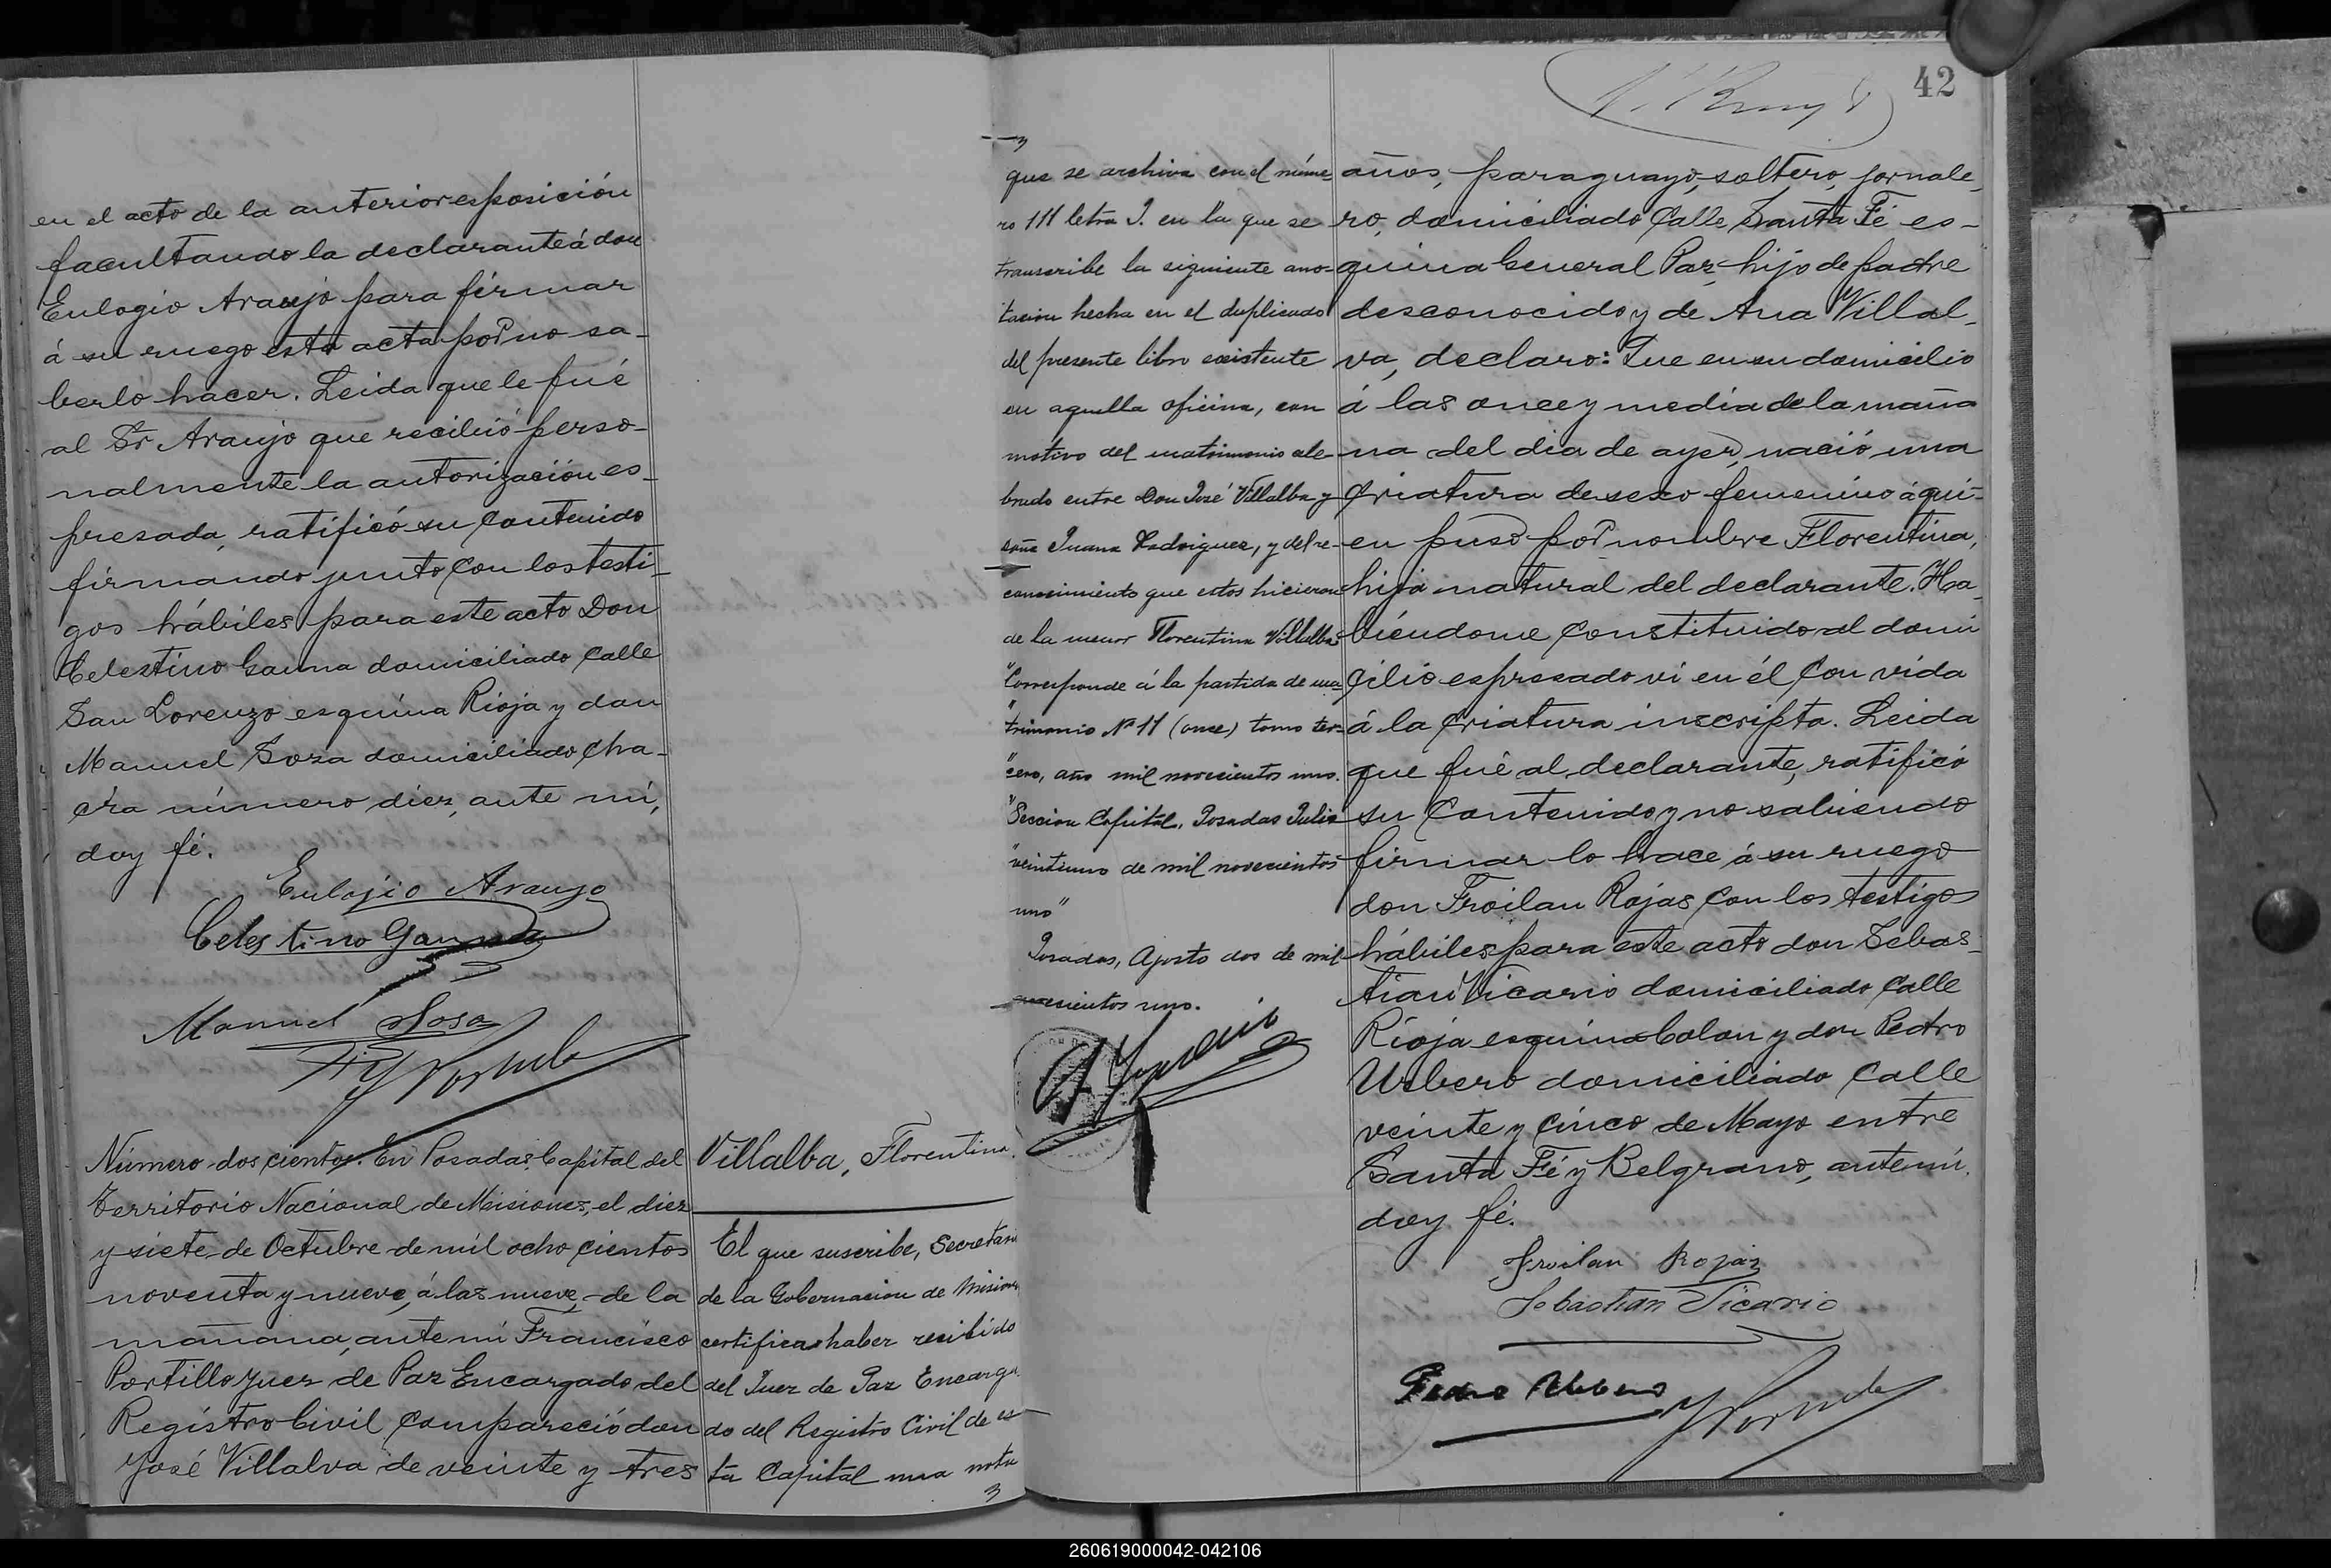 en el acto de la anterior esposición
facultando la declarante á don
Eulogio Araujo para firmar
á su ruego esta acta por no sa-
berlo hacer. Leida que le fué
al Sr Araujo que recibió perso-
nalmente la autorización es-
presada, ratificó su contenido
firmando junto con los testi-
gos hábiles para este acto Don
Celestino Gauna domiciliado calle
San Lorenzo esquina Rioja y don
Manuel Sosa domiciliado cha-
cra número diez, ante mí,
doy fé.
Eulojio Araujo
Celestino Gauna
Manuel Sosa
Número doscientos. En Posadas, Capital del
Territorio Nacional de Misiones, el diez
y siete de Octubre de mil ochocientos
noventa y nueve, á las nueve de la
mañana, ante mi Francisco
Portillo Juez de Paz Encargado del
Registro Civil compareció don
José Villalva de veinte y tres
Villalba, Florentina.
El que suscribe, Secretario
de la Gobernacion de Misiones
certifica haber recibido
del Juez de Paz Encarga-
do del Registro Civil de es-
ta Capital una nota
que se archiva con el núme-
ro 111 letra J. en la que se
transcribe la siguiente ano-
tacion hecha en el duplicado
del presente libro existente
en aquella oficina, con
motivo del matrimonio cele-
brado entre Don José Villalba y
doña Juana Rodriguez, y del re-
conocimiento que estos hicieron
de la menor Florentina Villalba
"Corresponde á la partida de ma-
"trimonio Nº 11 (once) tomo ter-
"cero, año mil novecientos uno.
"Seccion Capital. Posadas Julio
"veintiuno de mil novecientos
uno"
Posadas, Agosto dos de mil
novecientos uno.
42
años, paraguayo, soltero, jornale-
ro, domiciliado Calle Santa Fé es-
quina General Paz, hijo de padre
desconocido y de Ana Villal-
va, declaro: Que en su domicilio
á las once y media de la maña
na del dia de ayer, nació una
criatura de sexo femenino á qui-
en puso por nombre Florentina,
hija natural del declarante. Ha-
biéndome constituido al domi
cilio espresado vi en él con vida
á la criatura inscripta. Leida
que fué al declarante, ratificó
su contenido y no sabiendo
firmar lo hace á su ruego
don Froilan Rojas con los testigos
hábiles para este acto don Sebas-
tian Vicario domiciliado calle
Rioja esquina Colon y don Pedro
Urbero domiciliado calle
veinte y cinco de Mayo entre
Santa Fé y Belgrano, ante mi,
doy fé.
Froilan Rojas
Sebastian Vicario
Pedro Urbero
260619000042-042106